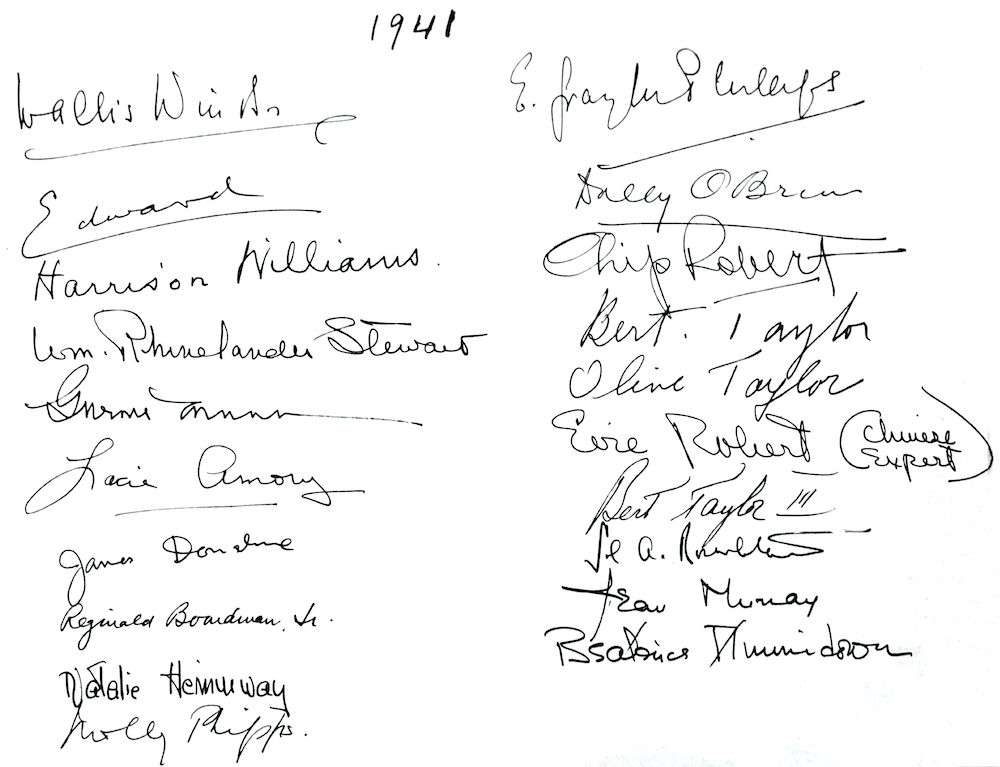 1941
Wallis Windsor
Edward
Harrison Williams.
Wm. Rhinelander Stewart
Amory
James Donahue
Reginald Boardman, Jr.
Natalie Hemmway
Molly Phipps.
E.
Dolly O'Brien
Chip Robert
Bert. Taylor
Olive Taylor
Evie Robert (Chinese Expert)
Bert Taylor III
A.
Jean Murray
Beatrice